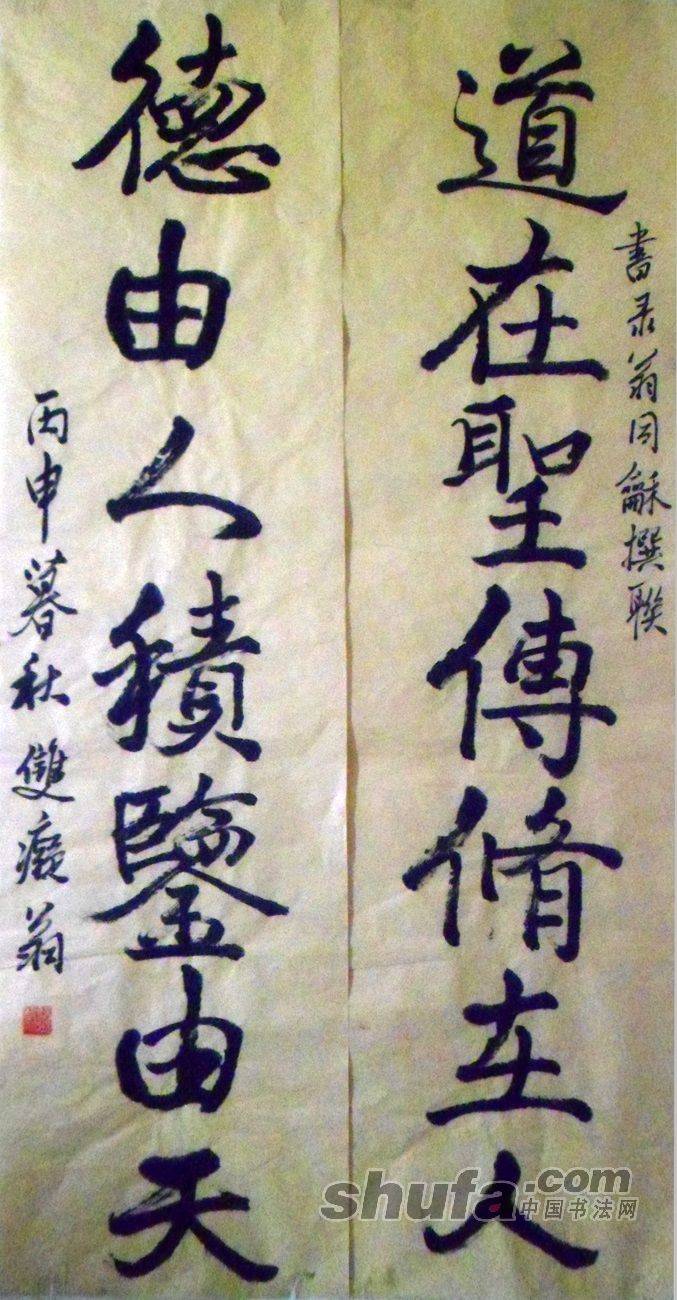 書录翁同龢撰聯
道在聖傳脩在人
德由人積鑒由天
丙申暮秋雙癡翁
shufa.com
中国书法网